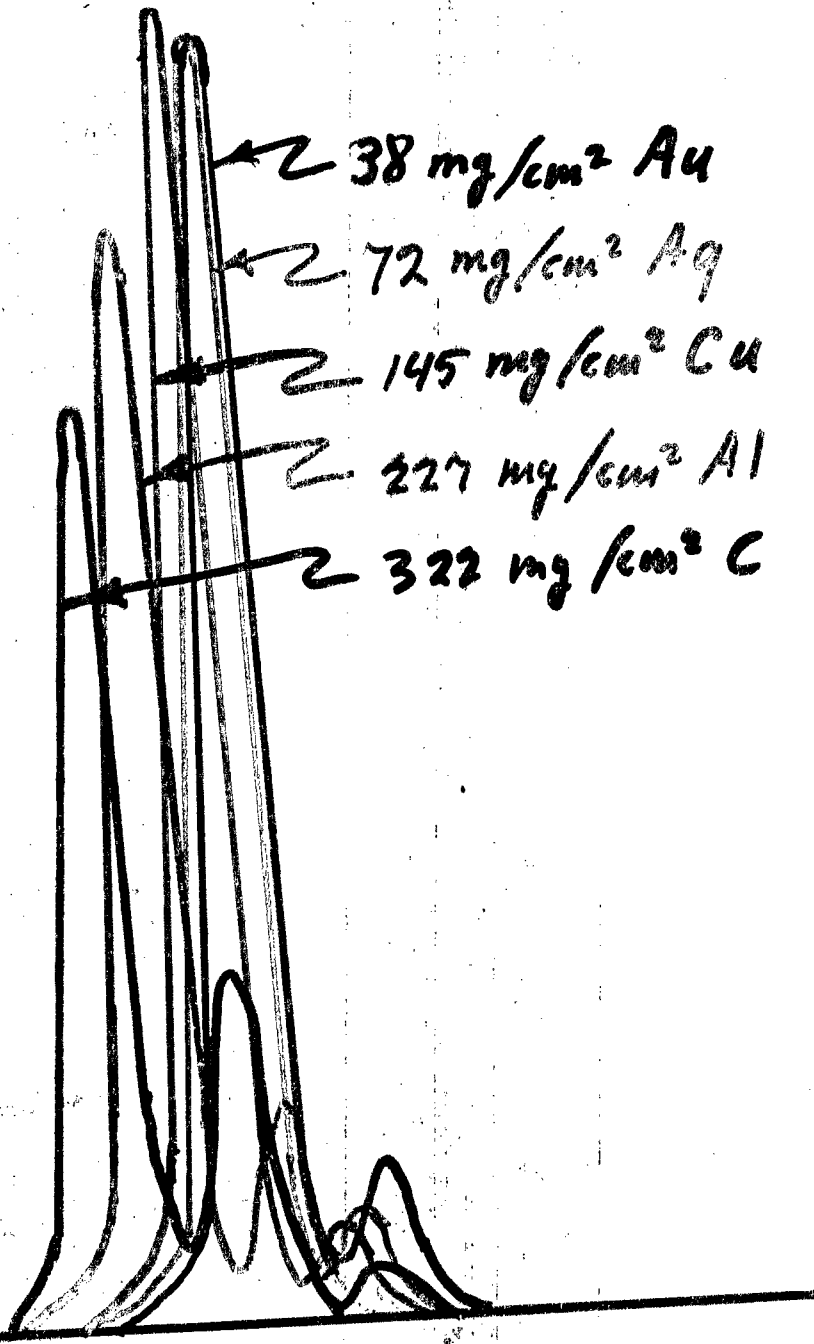 38 mg/cm² Au
72 mg/cm² Ag
145 mg/cm² Cu
227 mg/cm² Al
322 mg/cm² C